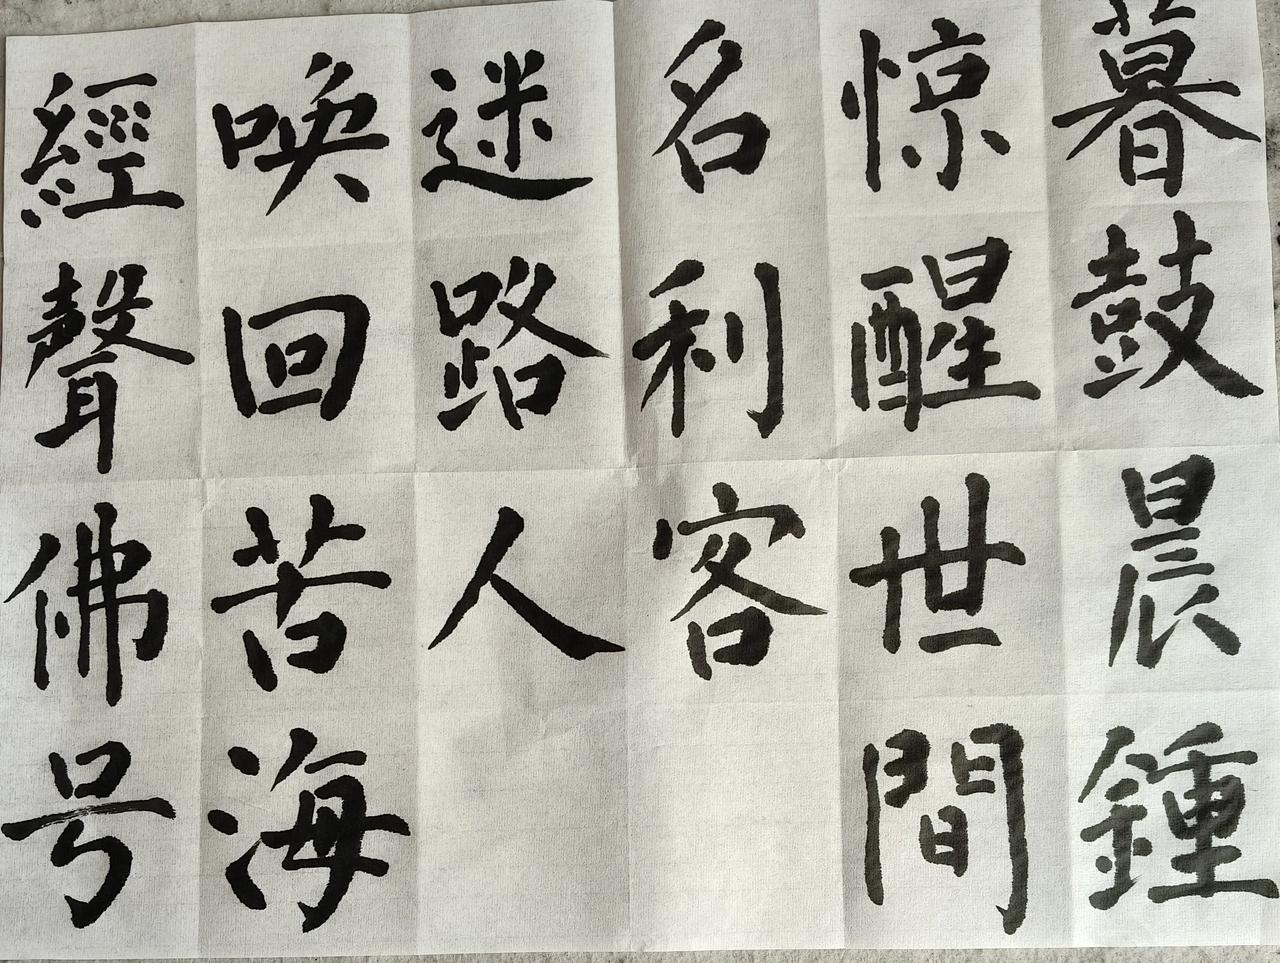 暮鼓晨鍾
惊醒世間
名利客
迷路人
唤回苦海
經聲佛号